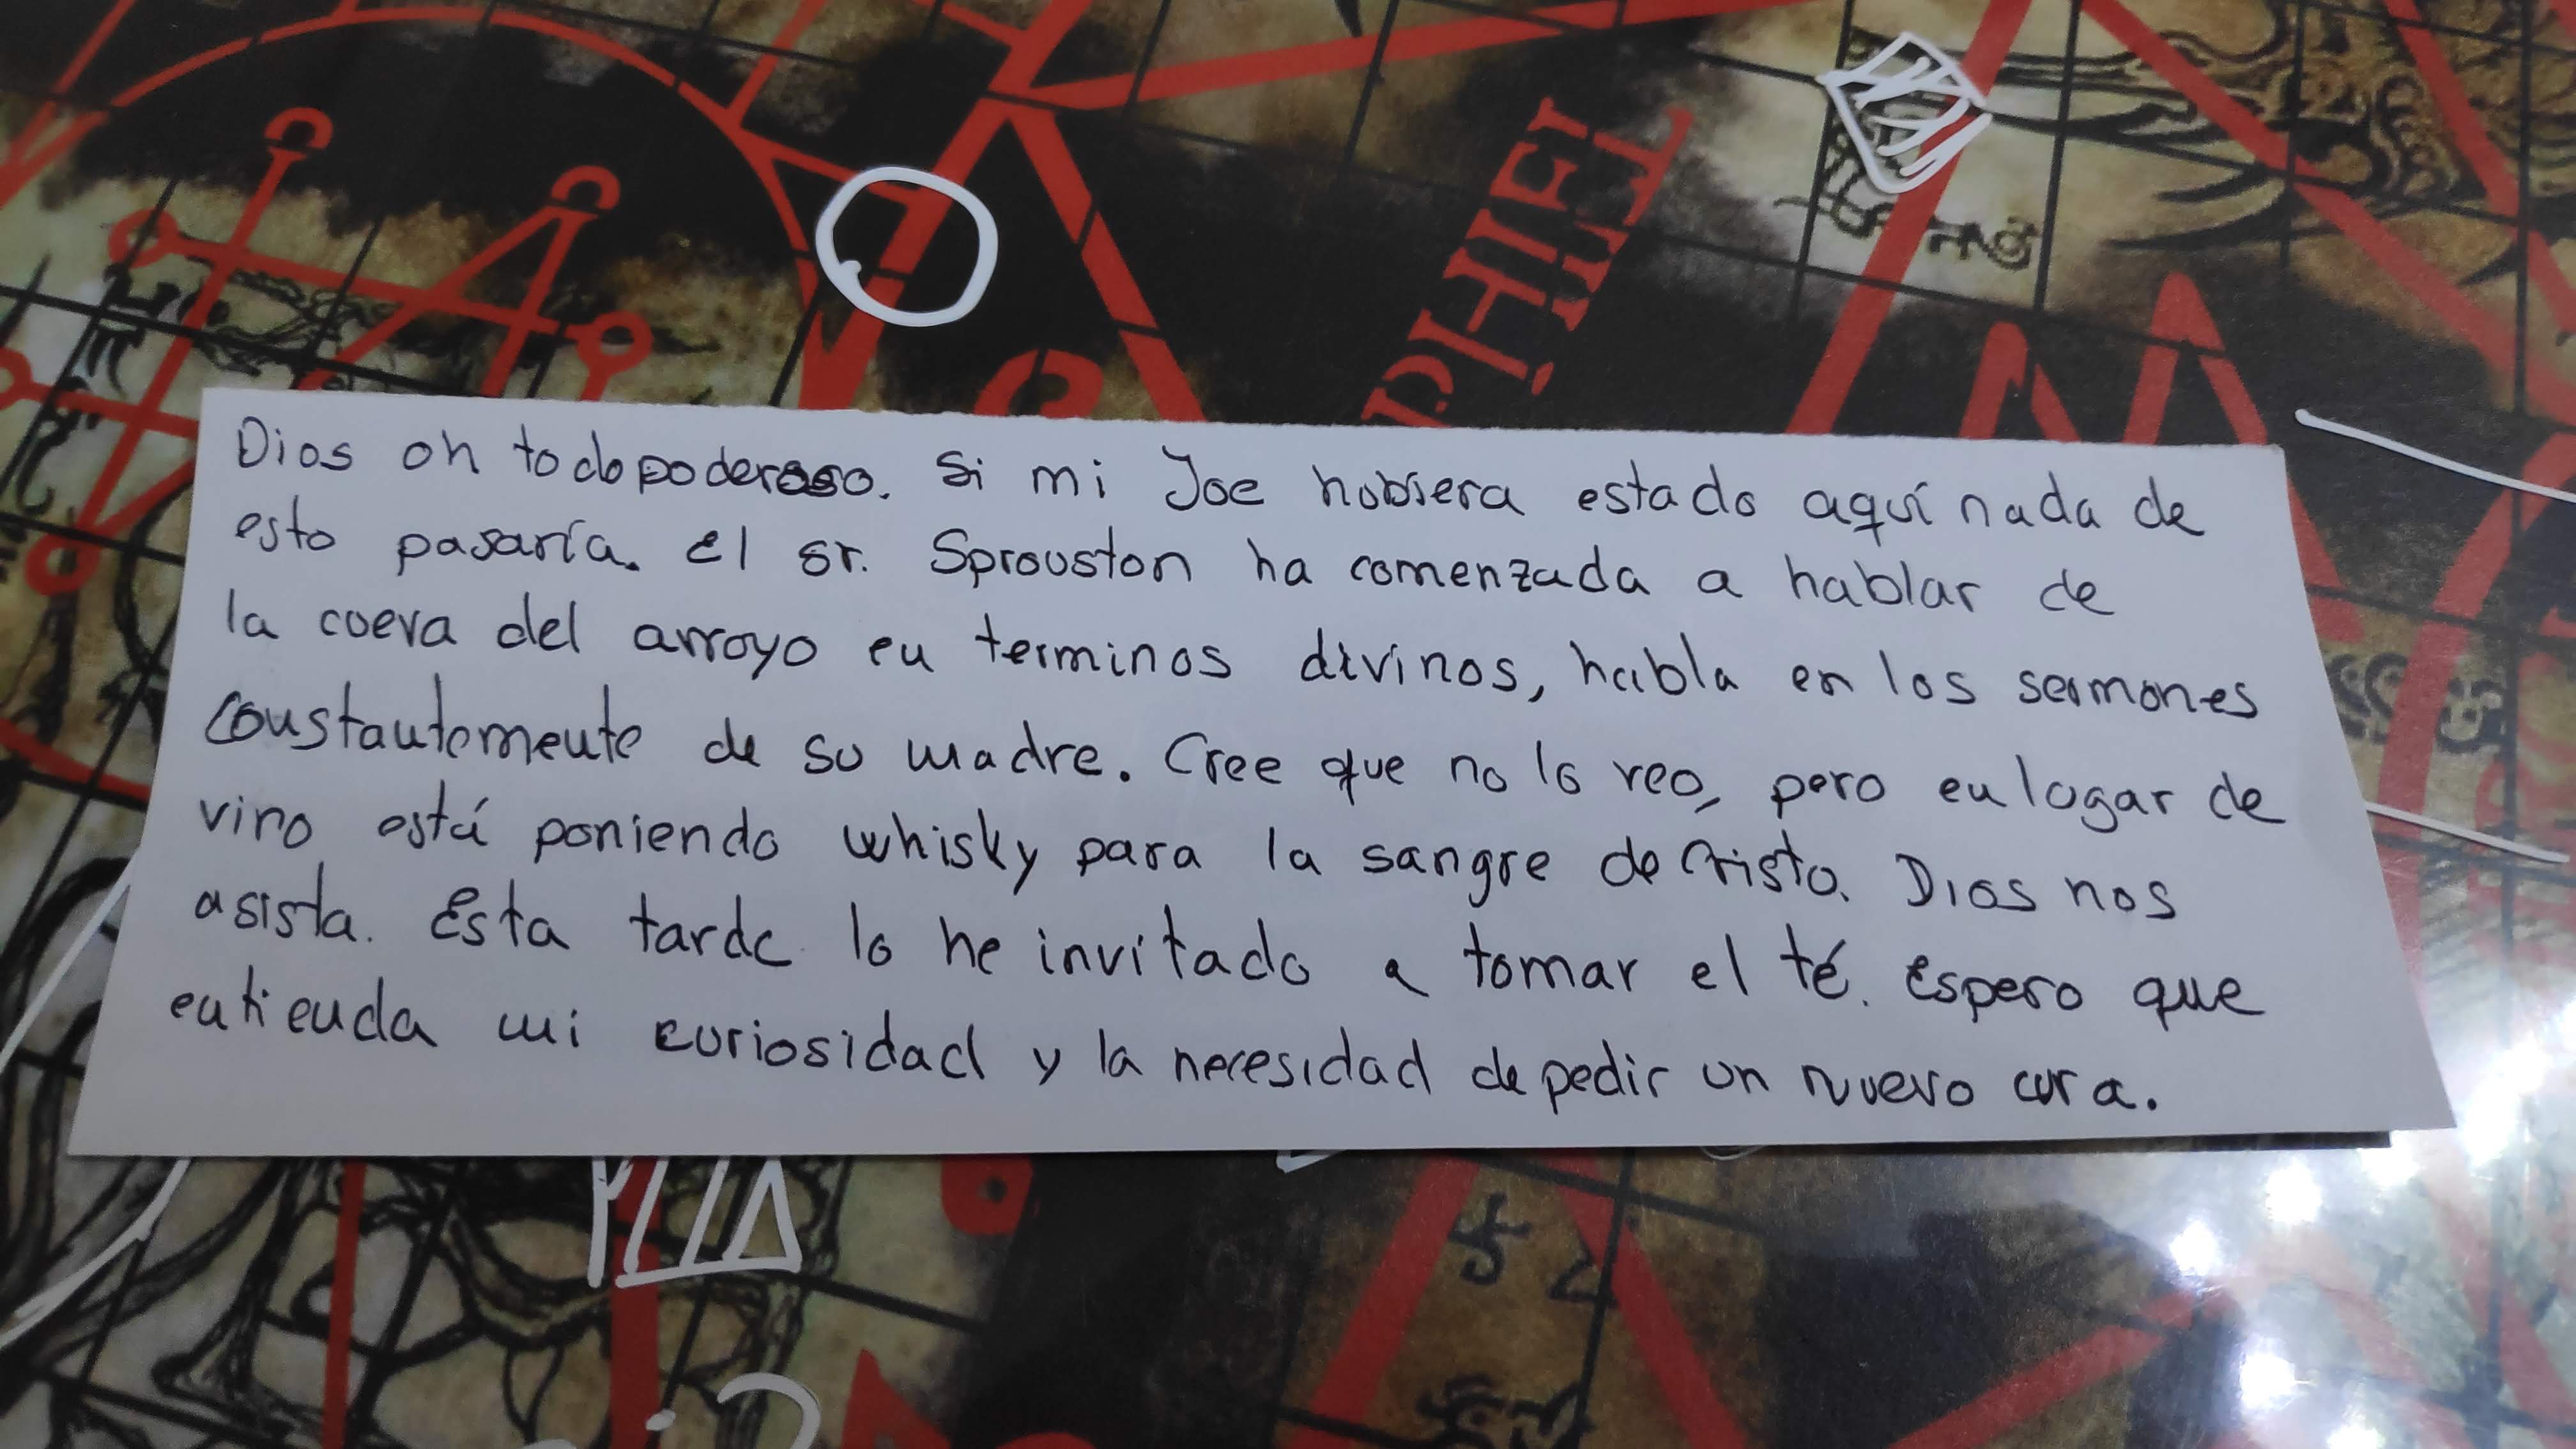 PHEL
Dios oh todopoderoso. Si mi Joe hubiera estado aquí nada de
esto pasaría. El sr. Sprouston ha comenzado a hablar de
la cueva del arroyo en terminos divinos, habla en los sermones
constantemente de su madre. Cree que no lo veo, pero en lugar de
vino está poniendo whisky para la sangre de Cristo. Dios nos
asista. Esta tarde lo he invitado a tomar el té. Espero que
entienda mi curiosidad y la necesidad de pedir un nuevo cura.